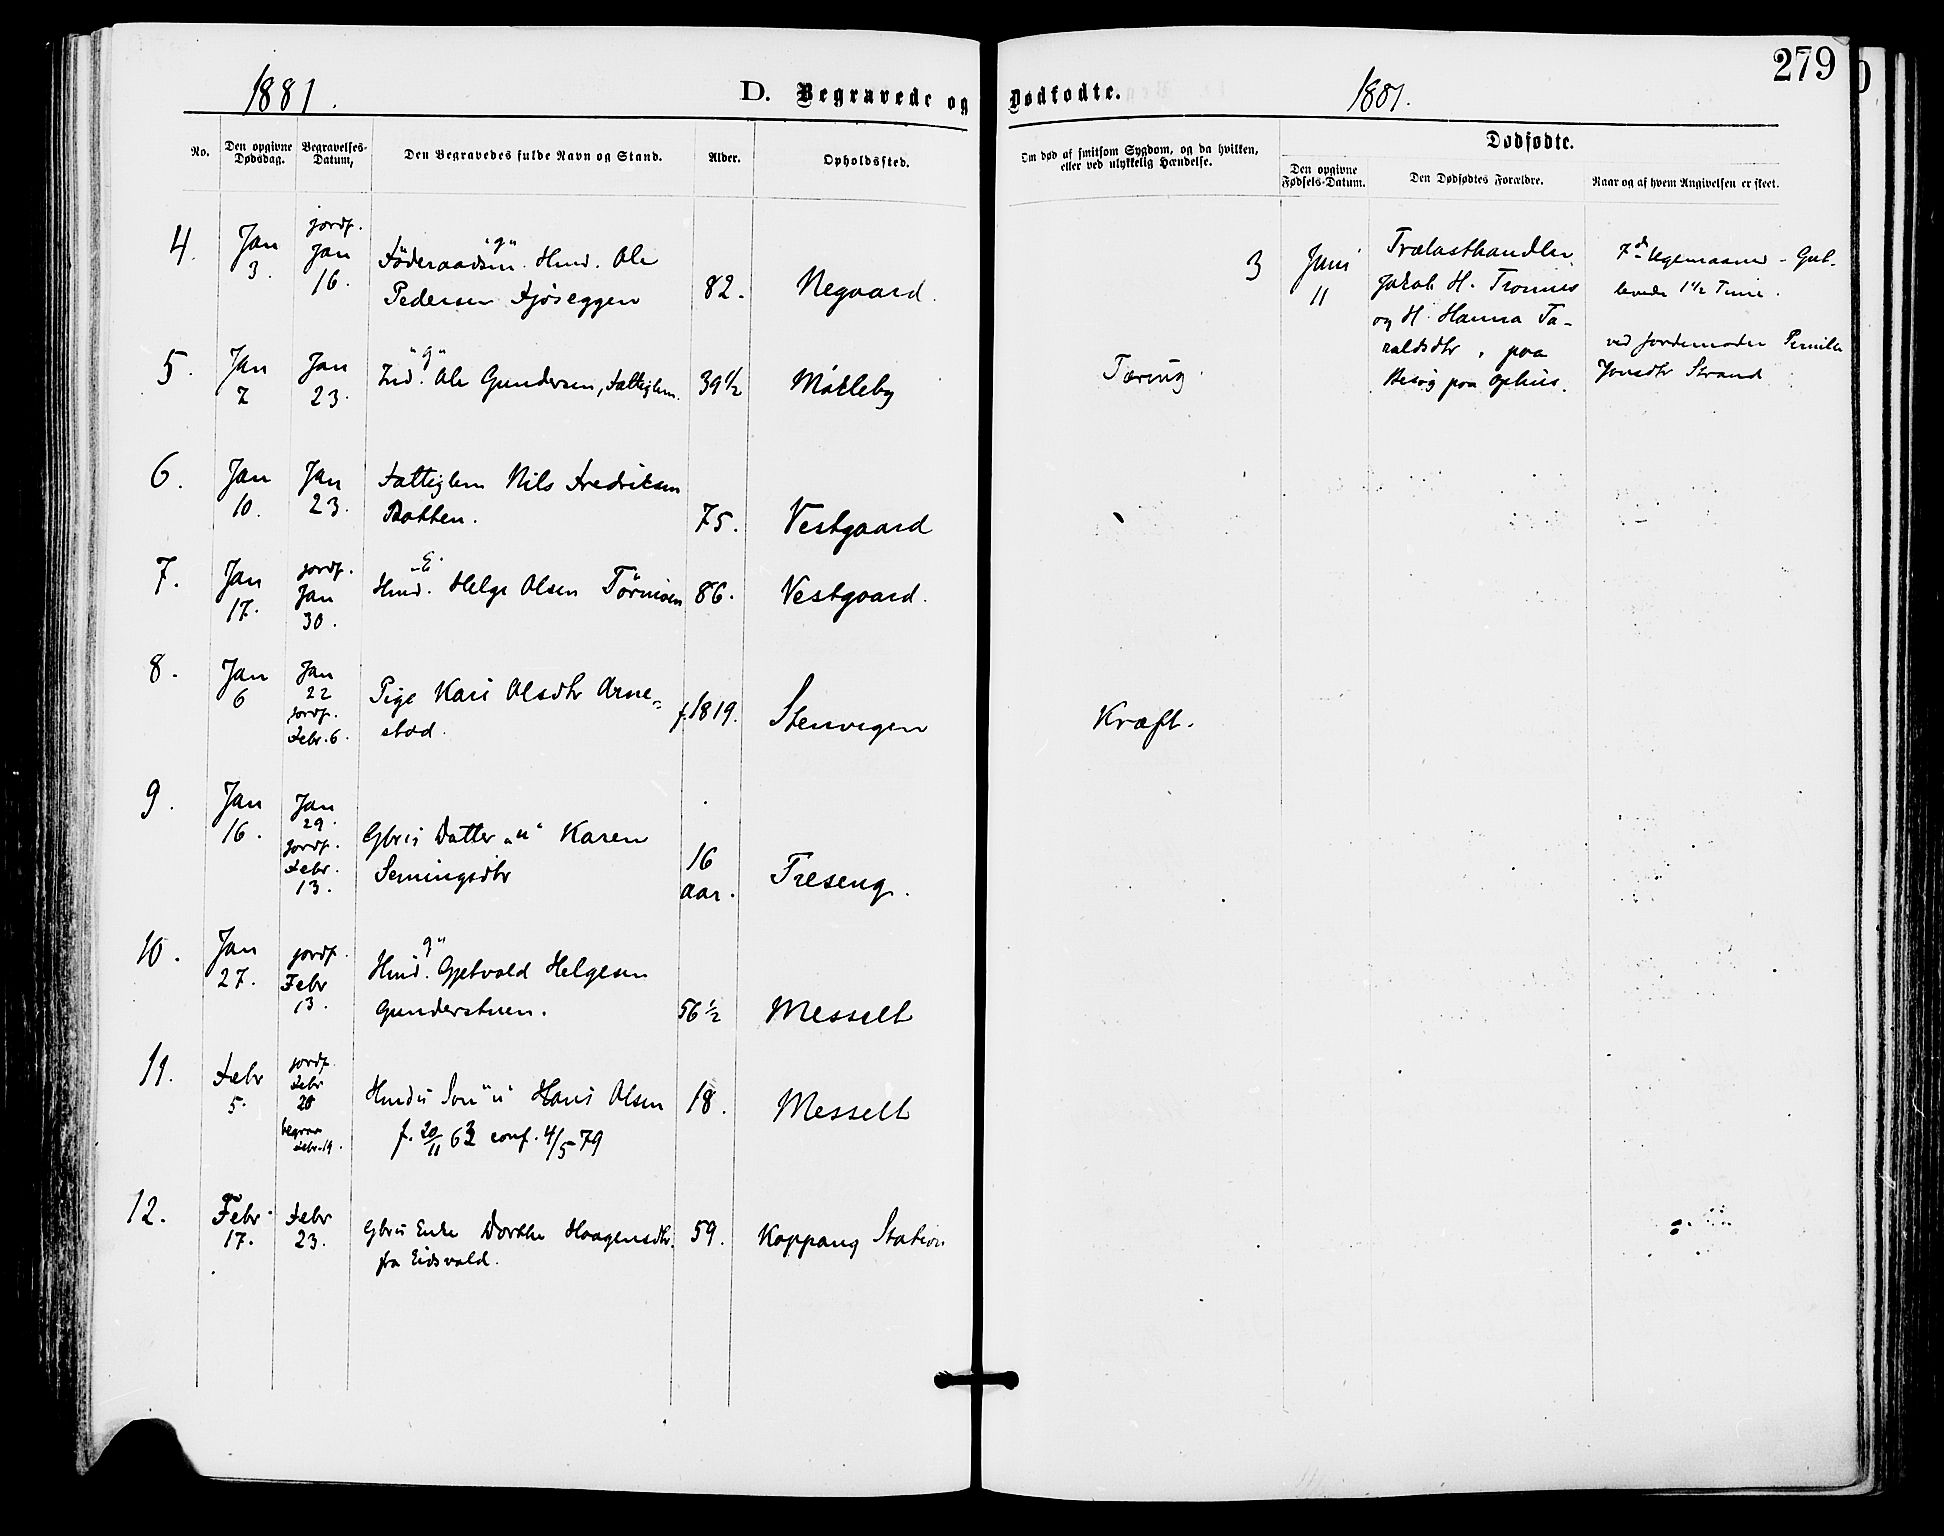 279
1881.
D. Begravede og Dødfødte.
1881.
No.
Den opgivne Dødsdag.
Begravelses-Datum,
Den Begravedes fulde Navn og Stand.
Alder.
Opholdssted.
Om død af smitsom Sygdom, og da hvilken,
eller ved ulykkelig Hændelse.
Dødfødte.
Den opgivne Fødsels-Datum.
Den Dødfødtes Forældre.
Naar og af hvem Angivelsen er skeet.
4. Jan 3. jordf. Jan 16.
Föderaadsm. "g" Hmd. Ole
Pedersen Fjöseggen 82. Negaard.
5. Jan 7 Jan 23. Ind. "g" Ole Gundersen, Fattiglem. 39 1/2 Møkleby Tæring.
6. Jan 10. Jan 23. Fattiglem Nils Fredriksen
Bakken. 75. Vestgaard
7. Jan 17. jordf. Jan 30. Hmd. "E" Helge Olsen Törmoen 86. Vestgaard.
8. Jan 6 Jan 22 jordf. Febr. 6. Pige Kari Olsdtr Arne-
stad. f. 1819. Stenvigen Kræft.
9. Jan 16. Jan 29. jordf. Febr. 13. Gbr's Datter "u" Karen
Semingsdtr 16 Aar. Treseng.
10. Jan 27. jordf. Febr 13. Hmd. "g" Gjetvold Helgesen
Gunderstuen. 56 1/2 Messelt
11. Febr 5. jordf Febr 20 begrav Febr. 19. Hmds Søn "u" Hans Olsen 18. Messelt
f. 20/11 62 conf. 4/5 79
12. Febr. 17. Febr 23. Gbr's Enke Dorthe Haagensdtr. 59. Koppang Station
fra Eidsvold.
3 Juni 11
Trælasthandler
Jakob H. Tronnes
og H. Hanna Ta-
raldsdtr, paa
Besög paa Ophus.
7de Ugemaaned - Gut.
levede 1 1/2 Time.
ved Jordemoder Pernille
Jonsdtr Strand